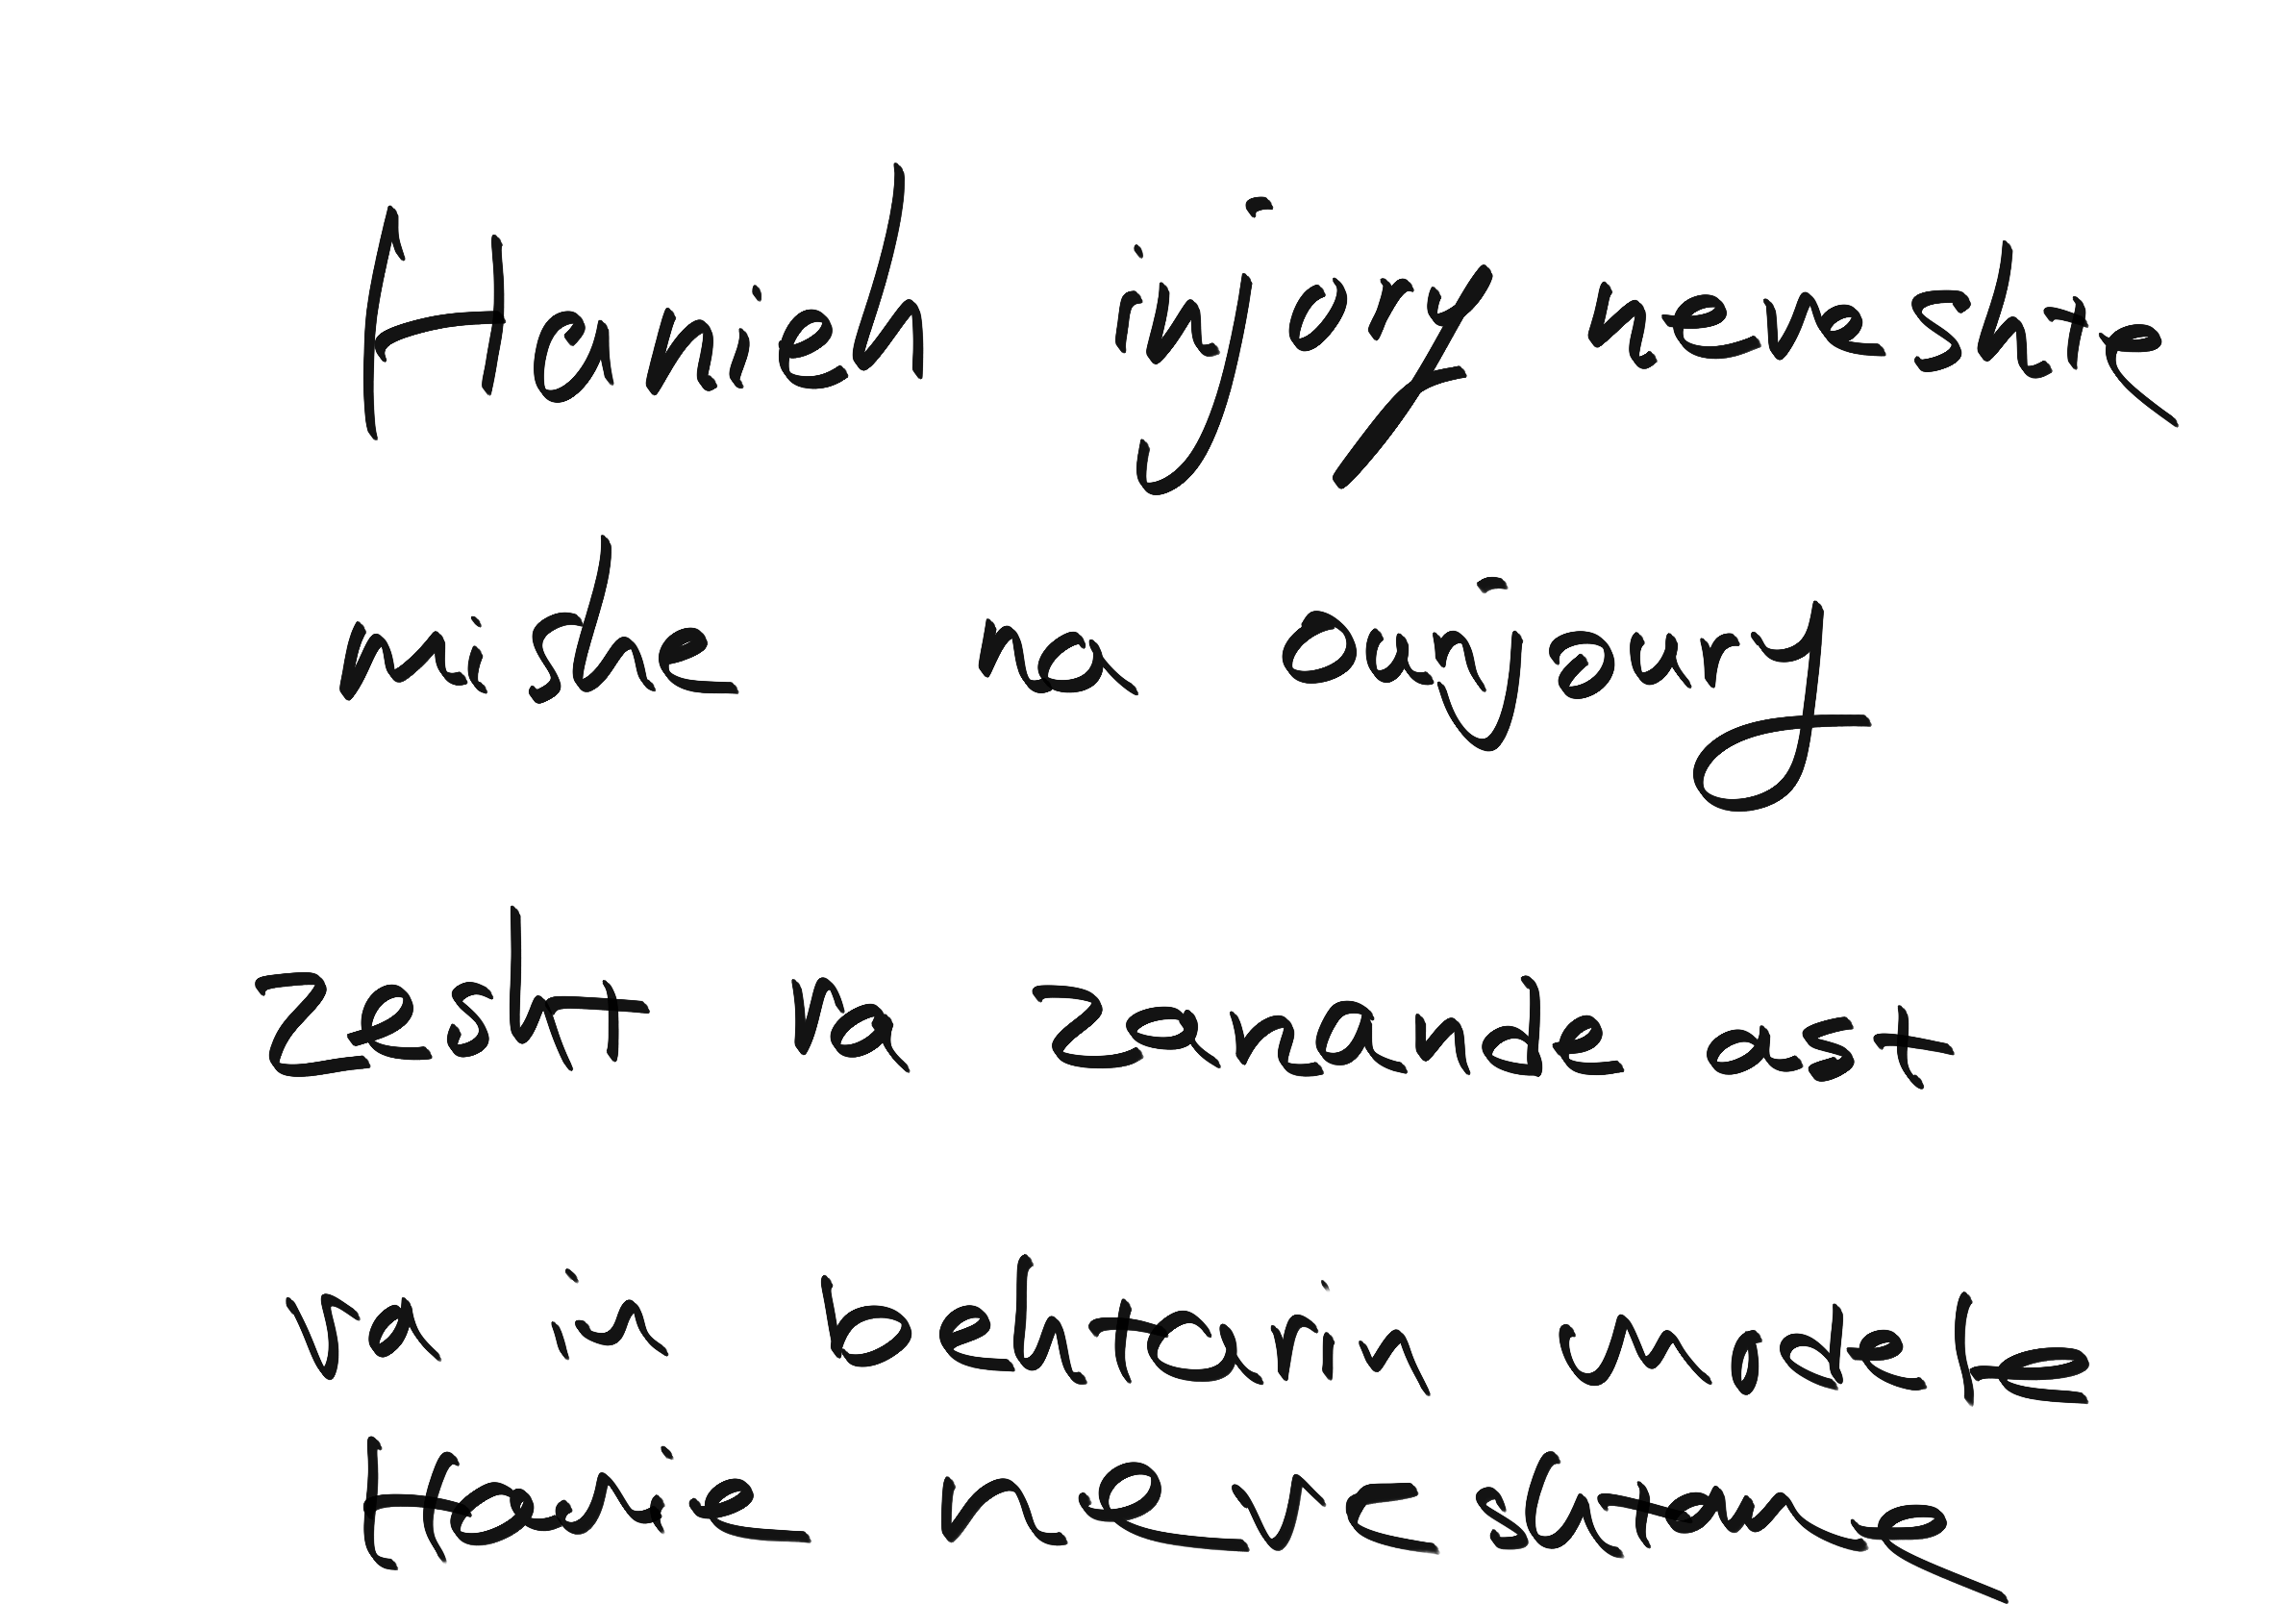 Hanieh injory neveshte
mishe na ounjoury
zesht na zanande ast
va in behtarin modele
Hanie neveshtane